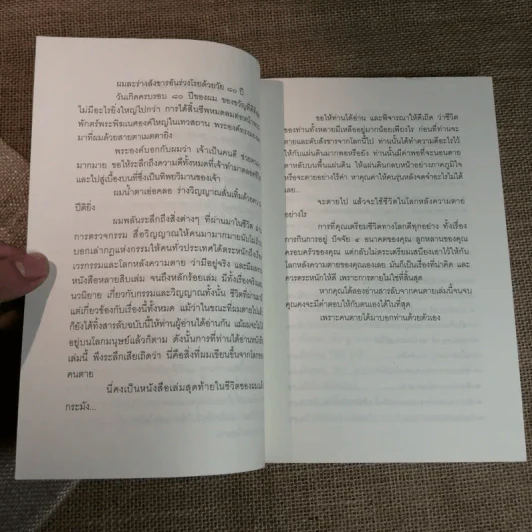 ผมละร่างสังขารอันร่วงโรยด้วยวัย ๘๐ ปี
วันเกิดครบรอบ ๘๐ ปีของผม ของขวัญที่ดีที่
ไม่มีอะไรยิ่งใหญ่ไปกว่า การได้สิ้นชีพหมดลมต่อหน้าพระ
พักตร์พระพิฆเนศองค์ใหญ่ในเทวสถาน พระองค์ทรงมอง
มาที่ผมด้วยสายตาเมตตายิ่ง
พระองค์บอกกับผมว่า เจ้าเป็นคนดี ช่วย
มากมาย ขอให้ระลึกถึงความดีทั้งหมดที่เจ้าทำมาตลอดชีวิต
และไปสู่เบื้องบนที่ซึ่งเป็นทิพยวิมานของเจ้า
ผมน้ำตาเอ่อคลอ ร่างวิญญาณสั่นเทิ้มด้วย
ปีติยิ่ง
ผมพลันระลึกถึงสิ่งต่างๆ ที่ผ่านมาในชีวิต
การตรวจกรรม สื่อวิญญาณให้คนมามากมายนับไม่
บอกเล่ากฎแห่งกรรมให้คนทั่วประเทศได้ตระหนักถึง
เวรกรรมและโลกหลังความตาย ว่ามีอยู่จริง และมี
หนังสือหลายสิบเล่ม จนถึงหลักร้อยเล่ม มีทั้งเรื่อง
นวนิยาย เกี่ยวกับกรรมและวิญญาณทั้งนั้น ชีวิตที่ผ่าน
แต่เกี่ยวข้องกับเรื่องนี้หมด แม้ว่าในขณะที่ผมตายไป
ก็ยังได้ทิ้งสารลับฉบับนี้ให้ท่านผู้อ่านได้อ่านกัน แม้ผมจะไม่
อยู่บนโลกมนุษย์แล้วก็ตาม ดังนั้นการที่ท่านได้อ่านหนังสือ
เล่มนี้ พึงระลึกเสียเถิดว่า นี่คือสิ่งที่ผมเขียนขึ้นจากโลก
คนตาย
นี่คงเป็นหนังสือเล่มสุดท้ายในชีวิตของผม
กระมัง...
ขอให้ท่านได้อ่าน และพิจารณาให้ดีเถิด ว่าชีวิต
ของท่านทั้งหลายมีเหลืออยู่มากน้อยเพียงไร ก่อนที่ท่านจะ
ตายและดับสังขารจากโลกนี้ไป ท่านได้ทำความดีอะไรไว้
ให้กับแผ่นดินมากพอหรือยัง ท่านมีค่าพอที่จะนอนตาย
ตาหลับบนพื้นแผ่นดิน ให้แผ่นดินกลบหน้าอย่างภาคภูมิใจ
หรือจะตายอย่างไร้ค่า หาคุณค่าให้คนรุ่นหลังจดจำอะไรไม่ได้
เลย...
จะตายไป แล้วจะใช้ชีวิตในโลกหลังความตาย
อย่างไร
การที่คุณเตรียมชีวิตทางโลกดีทุกอย่าง ทั้งเรื่อง
การกินการอยู่ ปัจจัย ๔ อนาคตของคุณ ลูกหลานของคุณ
ครอบครัวของคุณ แต่กลับไม่ตระเตรียมเสบียงเอาไว้ให้กับ
โลกหลังความตายของคุณเองเลย มันก็เป็นเรื่องที่น่าคิด และ
ควรตระหนักให้ดี เพราะการตายไม่ใช่ที่สิ้นสุด
หากคุณได้ลองอ่านสารลับจากคนตายเล่มนี้จนจบ
คุณคงจะมีคำตอบให้กับตนเองได้ในที่สุด
เพราะคนตายได้มาบอกท่านด้วยตัวเอง